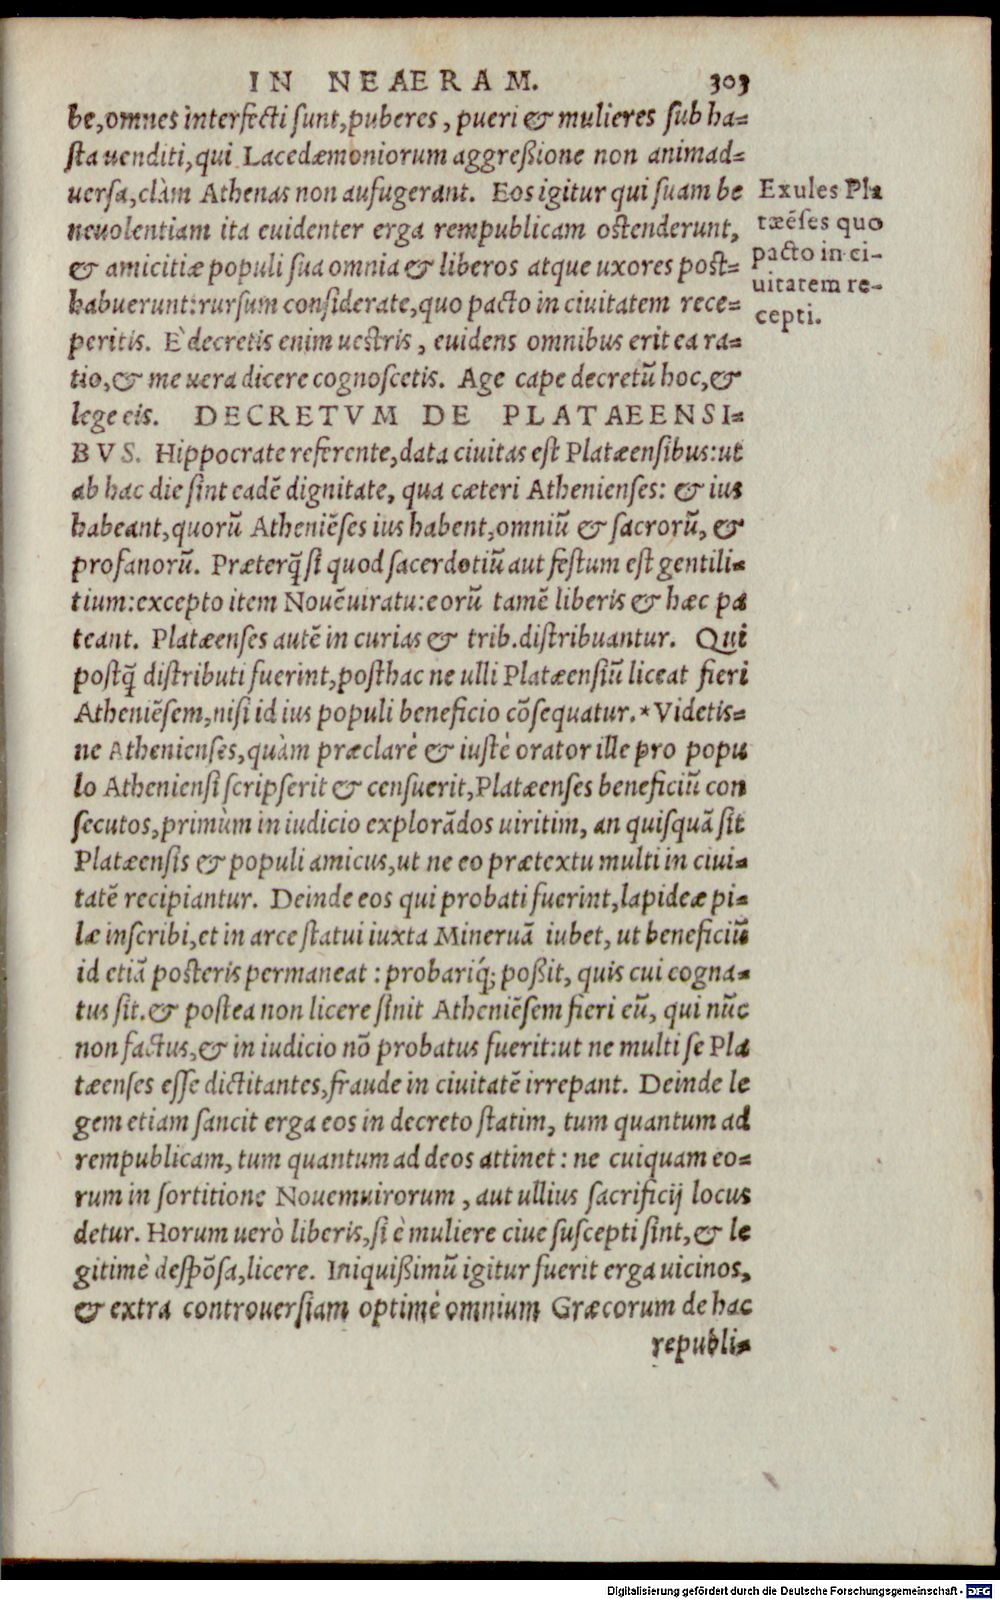 IN NEAERAM. 303
be, omnes interfecti sunt, puberes, pueri & mulieres sub ha=
sta uenditi, qui Lacedæmoniorum aggreßione non animad=
uersa, clàm Athenas non aufugerant. Eos igitur qui suam be
neuolentiam ita euidenter erga rempublicam ostenderunt,
& amicitiæ populi sua omnia & liberos atque uxores post=
habuerunt: rursum considerate, quo pacto in ciuitatem rece=
peritis. È decretis enim uestris, euidens omnibus erit ea ra=
tio, & me uera dicere cognoscetis. Age cape decretū hoc, &
lege eis. DECRETVM DE PLATAEENSI=
BVS. Hippocrate referente, data ciuitas est Platæensibus: ut
ab hac die sint eadē dignitate, qua cæteri Athenienses: & ius
habeant, quorū Atheniēses ius habent, omniū & sacrorū, &
profanorū. Præterq̃ si quod sacerdotiū aut festum est gentili=
tium: excepto item Nouēuiratu: eorū tamē liberis & hæc pa
teant. Platæenses autē in curias & trib. distribuantur. Qui
postq̃ distributi fuerint, posthac ne ulli Platæensiū liceat fieri
Atheniēsem, nisi id ius populi beneficio cōsequatur.* Videtis=
ne Athenienses, quàm præclarè & iustè orator ille pro popu
lo Atheniensi scripserit & censuerit, Platæenses beneficiū con
secutos, primùm in iudicio explorādos uiritim, an quisquā sit
Platæensis & populi amicus, ut ne eo prætextu multi in ciui=
tatē recipiantur. Deinde eos qui probati fuerint, lapideæ pi=
læ inscribi, et in arce statui iuxta Mineruā iubet, ut beneficiū
id etiā posteris permaneat: probariq́; poßit, quis cui cogna=
tus sit. & postea non licere sinit Atheniēsem fieri eū, qui nūc
non factus, & in iudicio nō probatus fuerit: ut ne multi se Pla
tæenses esse dictitantes, fraude in ciuitatē irrepant. Deinde le
gem etiam sancit erga eos in decreto statim, tum quantum ad
rempublicam, tum quantum ad deos attinet: ne cuiquam eo=
rum in sortitione Nouemuirorum, aut ullius sacrificij locus
detur. Horum uerò liberis, si è muliere ciue suscepti sint, & le
gitimè despōsa, licere. Iniquißimū igitur fuerit erga uicinos,
& extra controuersiam optimè omnium Græcorum de hac
republi=
Exules Pla
tæēses quo
pacto in ci-
uitatem re-
cepti.
Digitalisierung gefördert durch die Deutsche Forschungsgemeinschaft - DFG